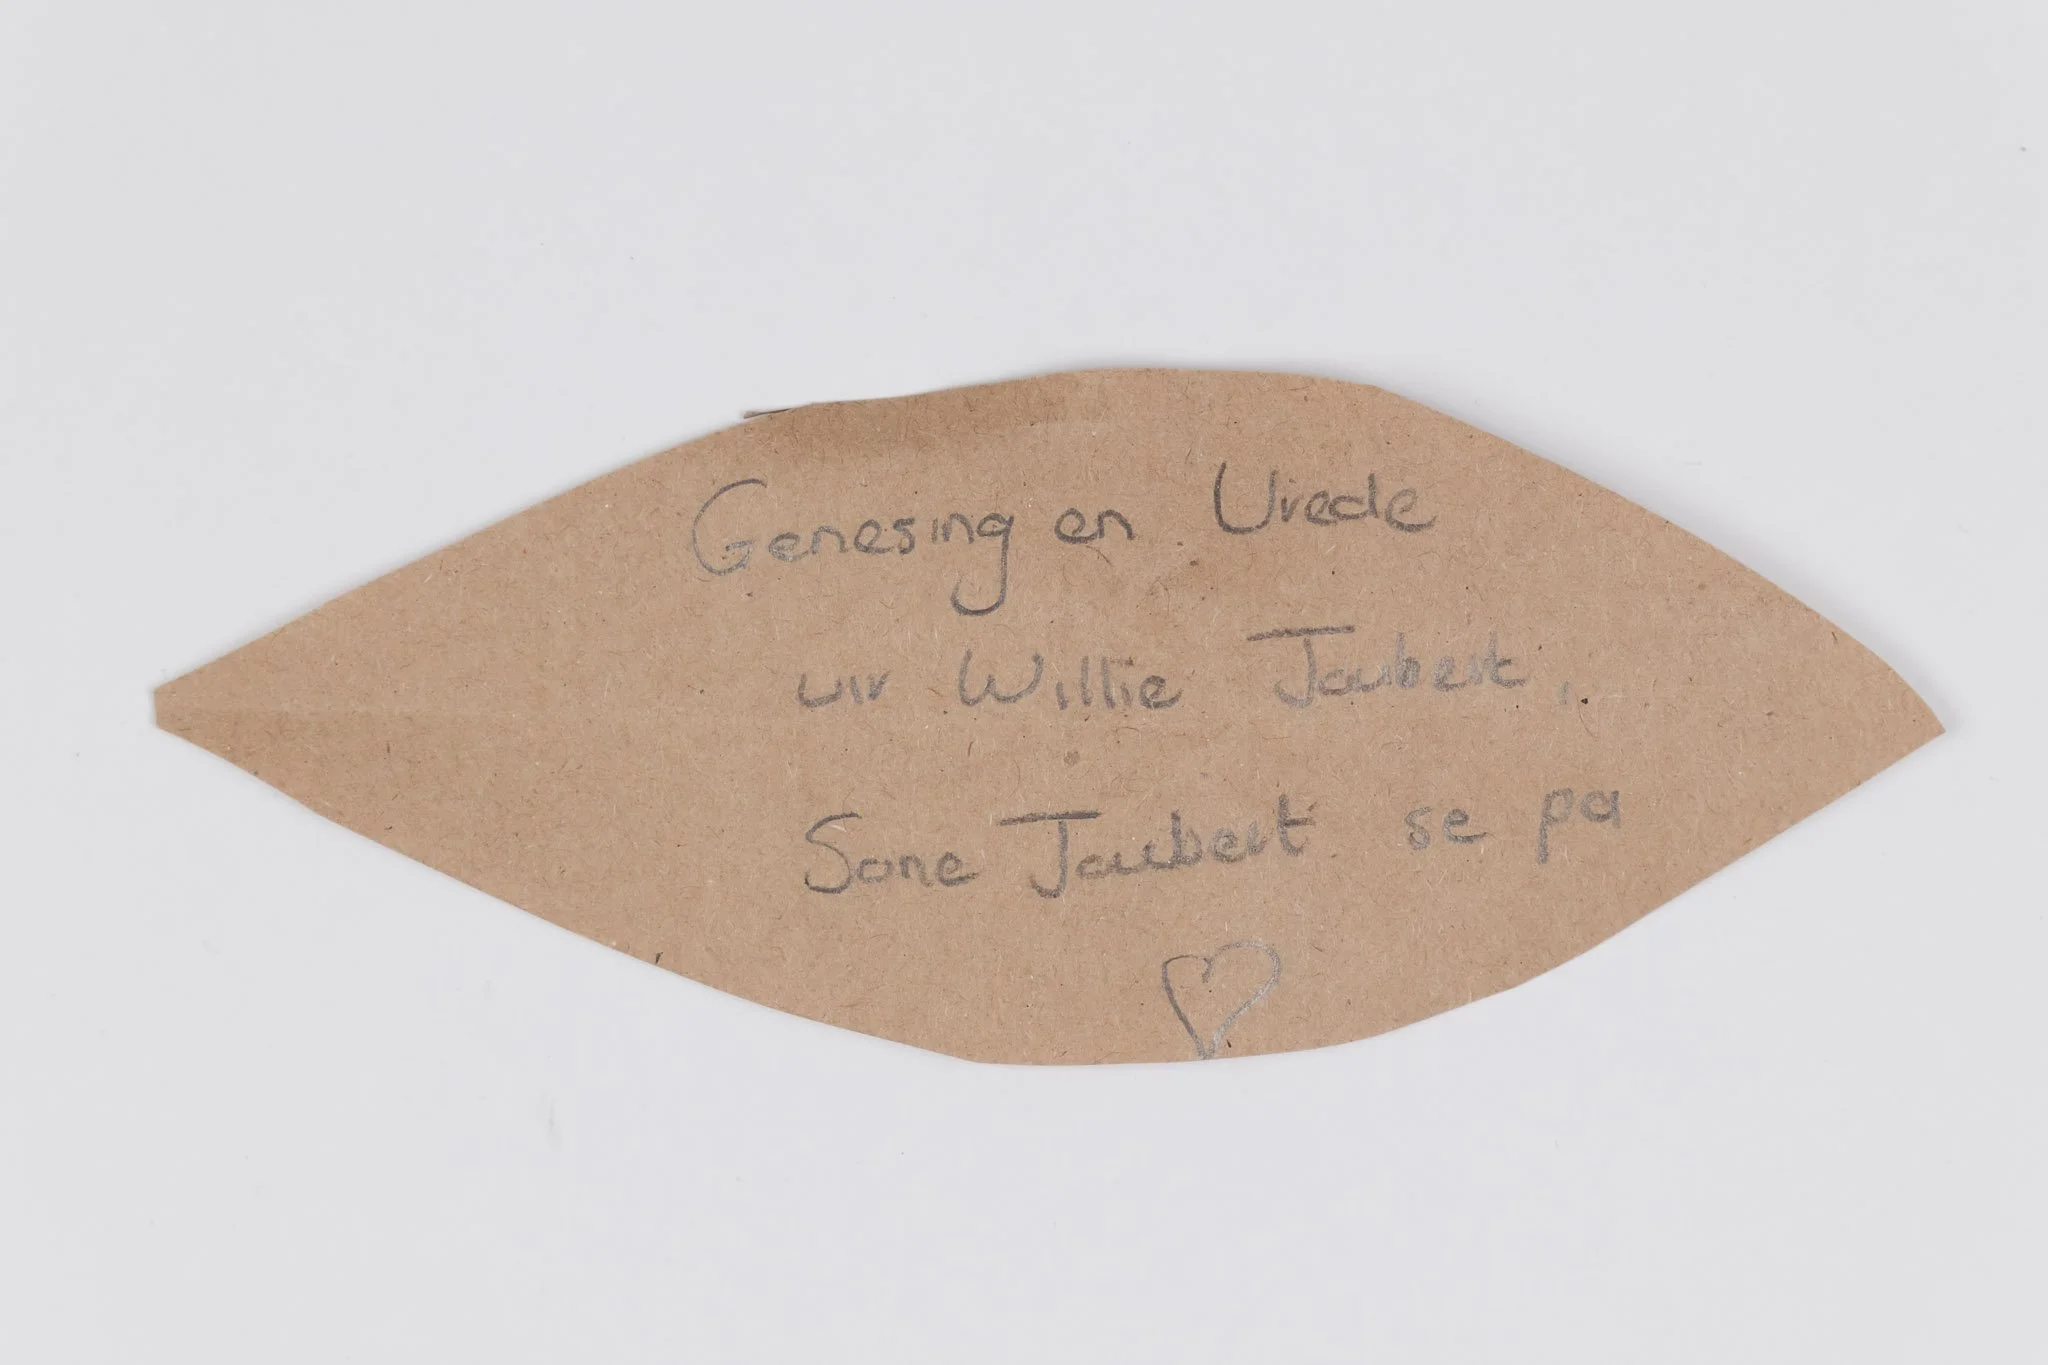 Genesing en Vrede
vir Willie Jaubert,
Sone Jaubert se pa